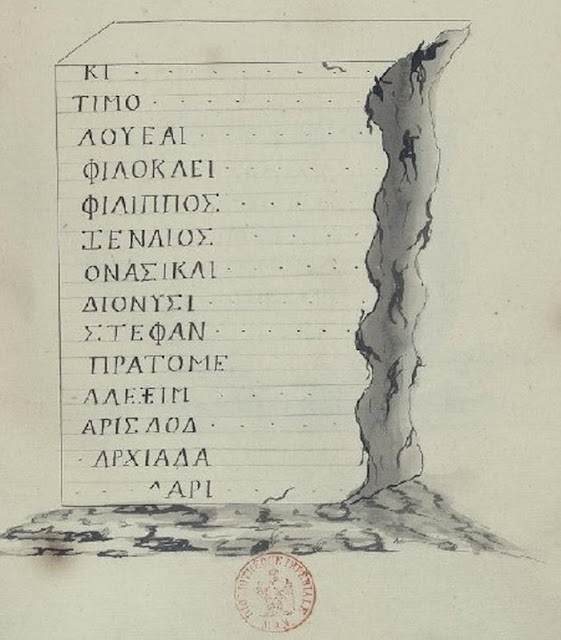 ΚΙ
ΤΙΜΟ
ΛΟΥΕΑΙ
ΦΙΛΟΚΛΕΙ
ΦΙΛΙΠΠΟΣ
ΞΕΝΑΙΟΣ
ΟΝΑΣΙΚΛΙ
ΔΙΟΝΥΣΙ
ΣΤΕΦΑΝ
ΠΡΑΤΟΜΕ
ΑΛΕΞΙΜ
ΑΡΙΣΛΟΔ
ΑΡΧΙΑΔΑ
ΛΑΡΙ
BIBLIOTHÈQUE IMPÉRIALE
MAN.